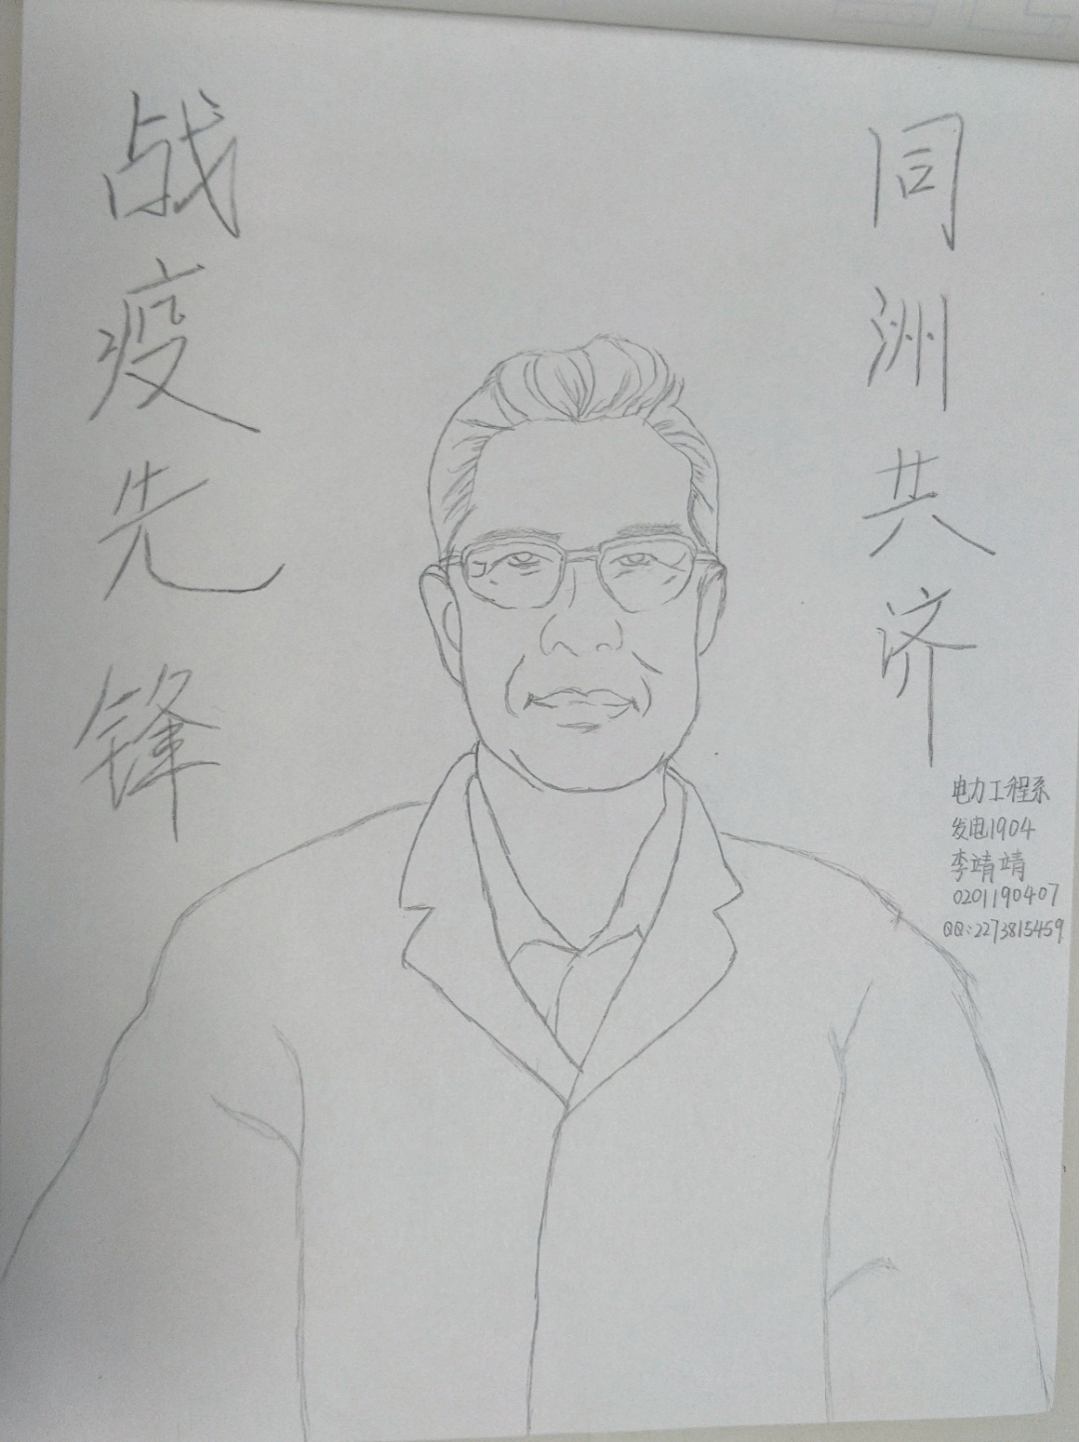 战疫先锋
同洲共济
电力工程系
发电1904
李靖靖
0201190407
QQ:2273815459